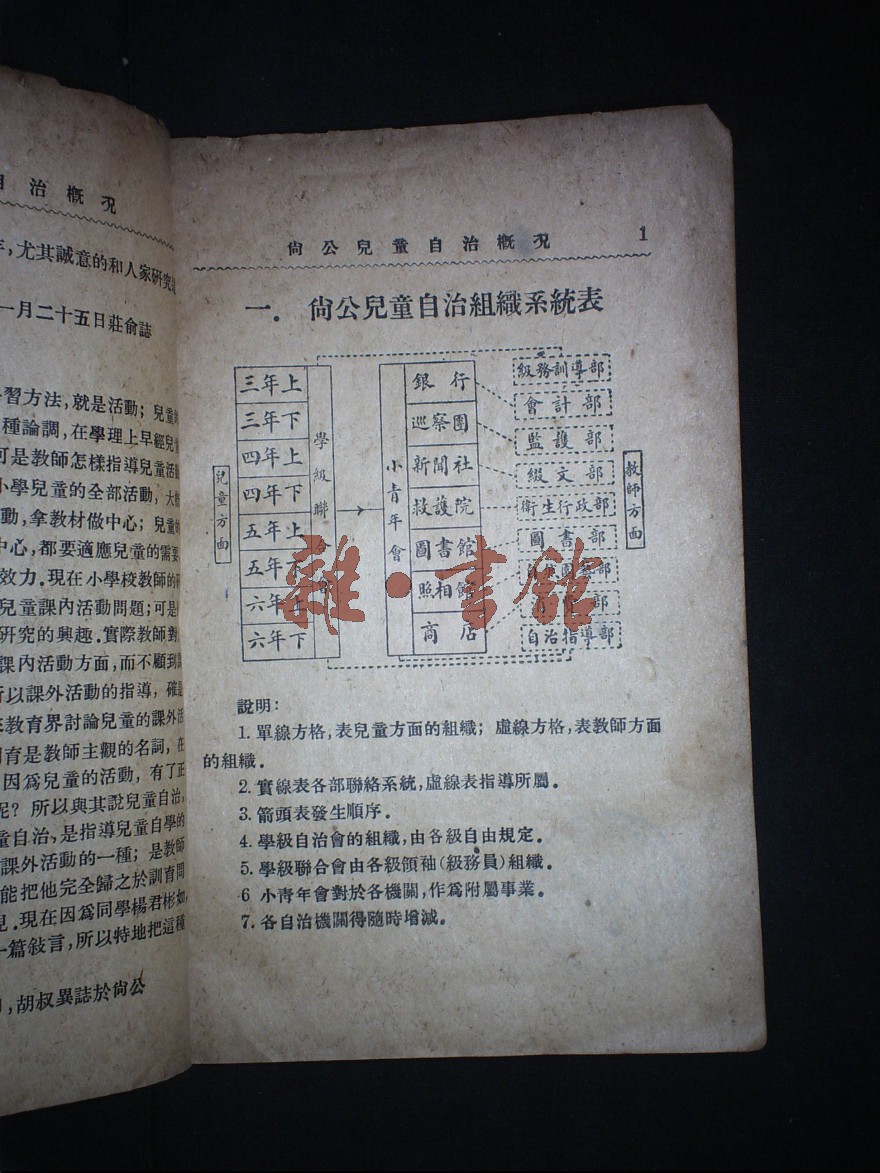 自治概況
年,尤其誠意的和人家研究
一月二十五日莊俞誌
習方法,就是活動;兒童
種論調,在學理上早經兒
可是教師怎樣指導兒童活
小學兒童的全部活動,大
動,拿教材做中心;兒童
中心,都要適應兒童的需要
效力.現在小學校教師的
兒童課內活動問題;可是
研究的興趣.實際教師對
課內活動方面,而不顧到
所以課外活動的指導,確是
教育界討論兒童的課外活
育是教師主觀的名詞,在
因為兒童的活動,有了正
呢?所以與其說兒童自治,
童自治,是指導兒童自學的
課外活動的一種;是教師
能把他完全歸之於訓育問
現在因為同學楊君彬如,
一篇敍言,所以特地把這種
,胡叔異誌於尙公
尙公兒童自治概況 1
一. 尙公兒童自治組織系統表
兒童方面
三年上
三年下
四年上
四年下
五年上
五年下
六年上
六年下
學級聯
小青年會
銀行
巡察團
新聞社
救護院
圖書館
照相館
商店
級務訓導部
會計部
監護部
綴文部
衛生行政部
圖書部
部
自治指導部
教師方面
雜·書館
說明:
1.單線方格,表兒童方面的組織;虛線方格,表教師方面
的組織.
2.實線表各部聯絡系統,虛線表指導所屬.
3.箭頭表發生順序.
4.學級自治會的組織,由各級自由規定.
5.學級聯合會由各級領袖(級務員)組織.
6 小青年會對於各機關,作爲附屬事業.
7.各自治機關得隨時增減.